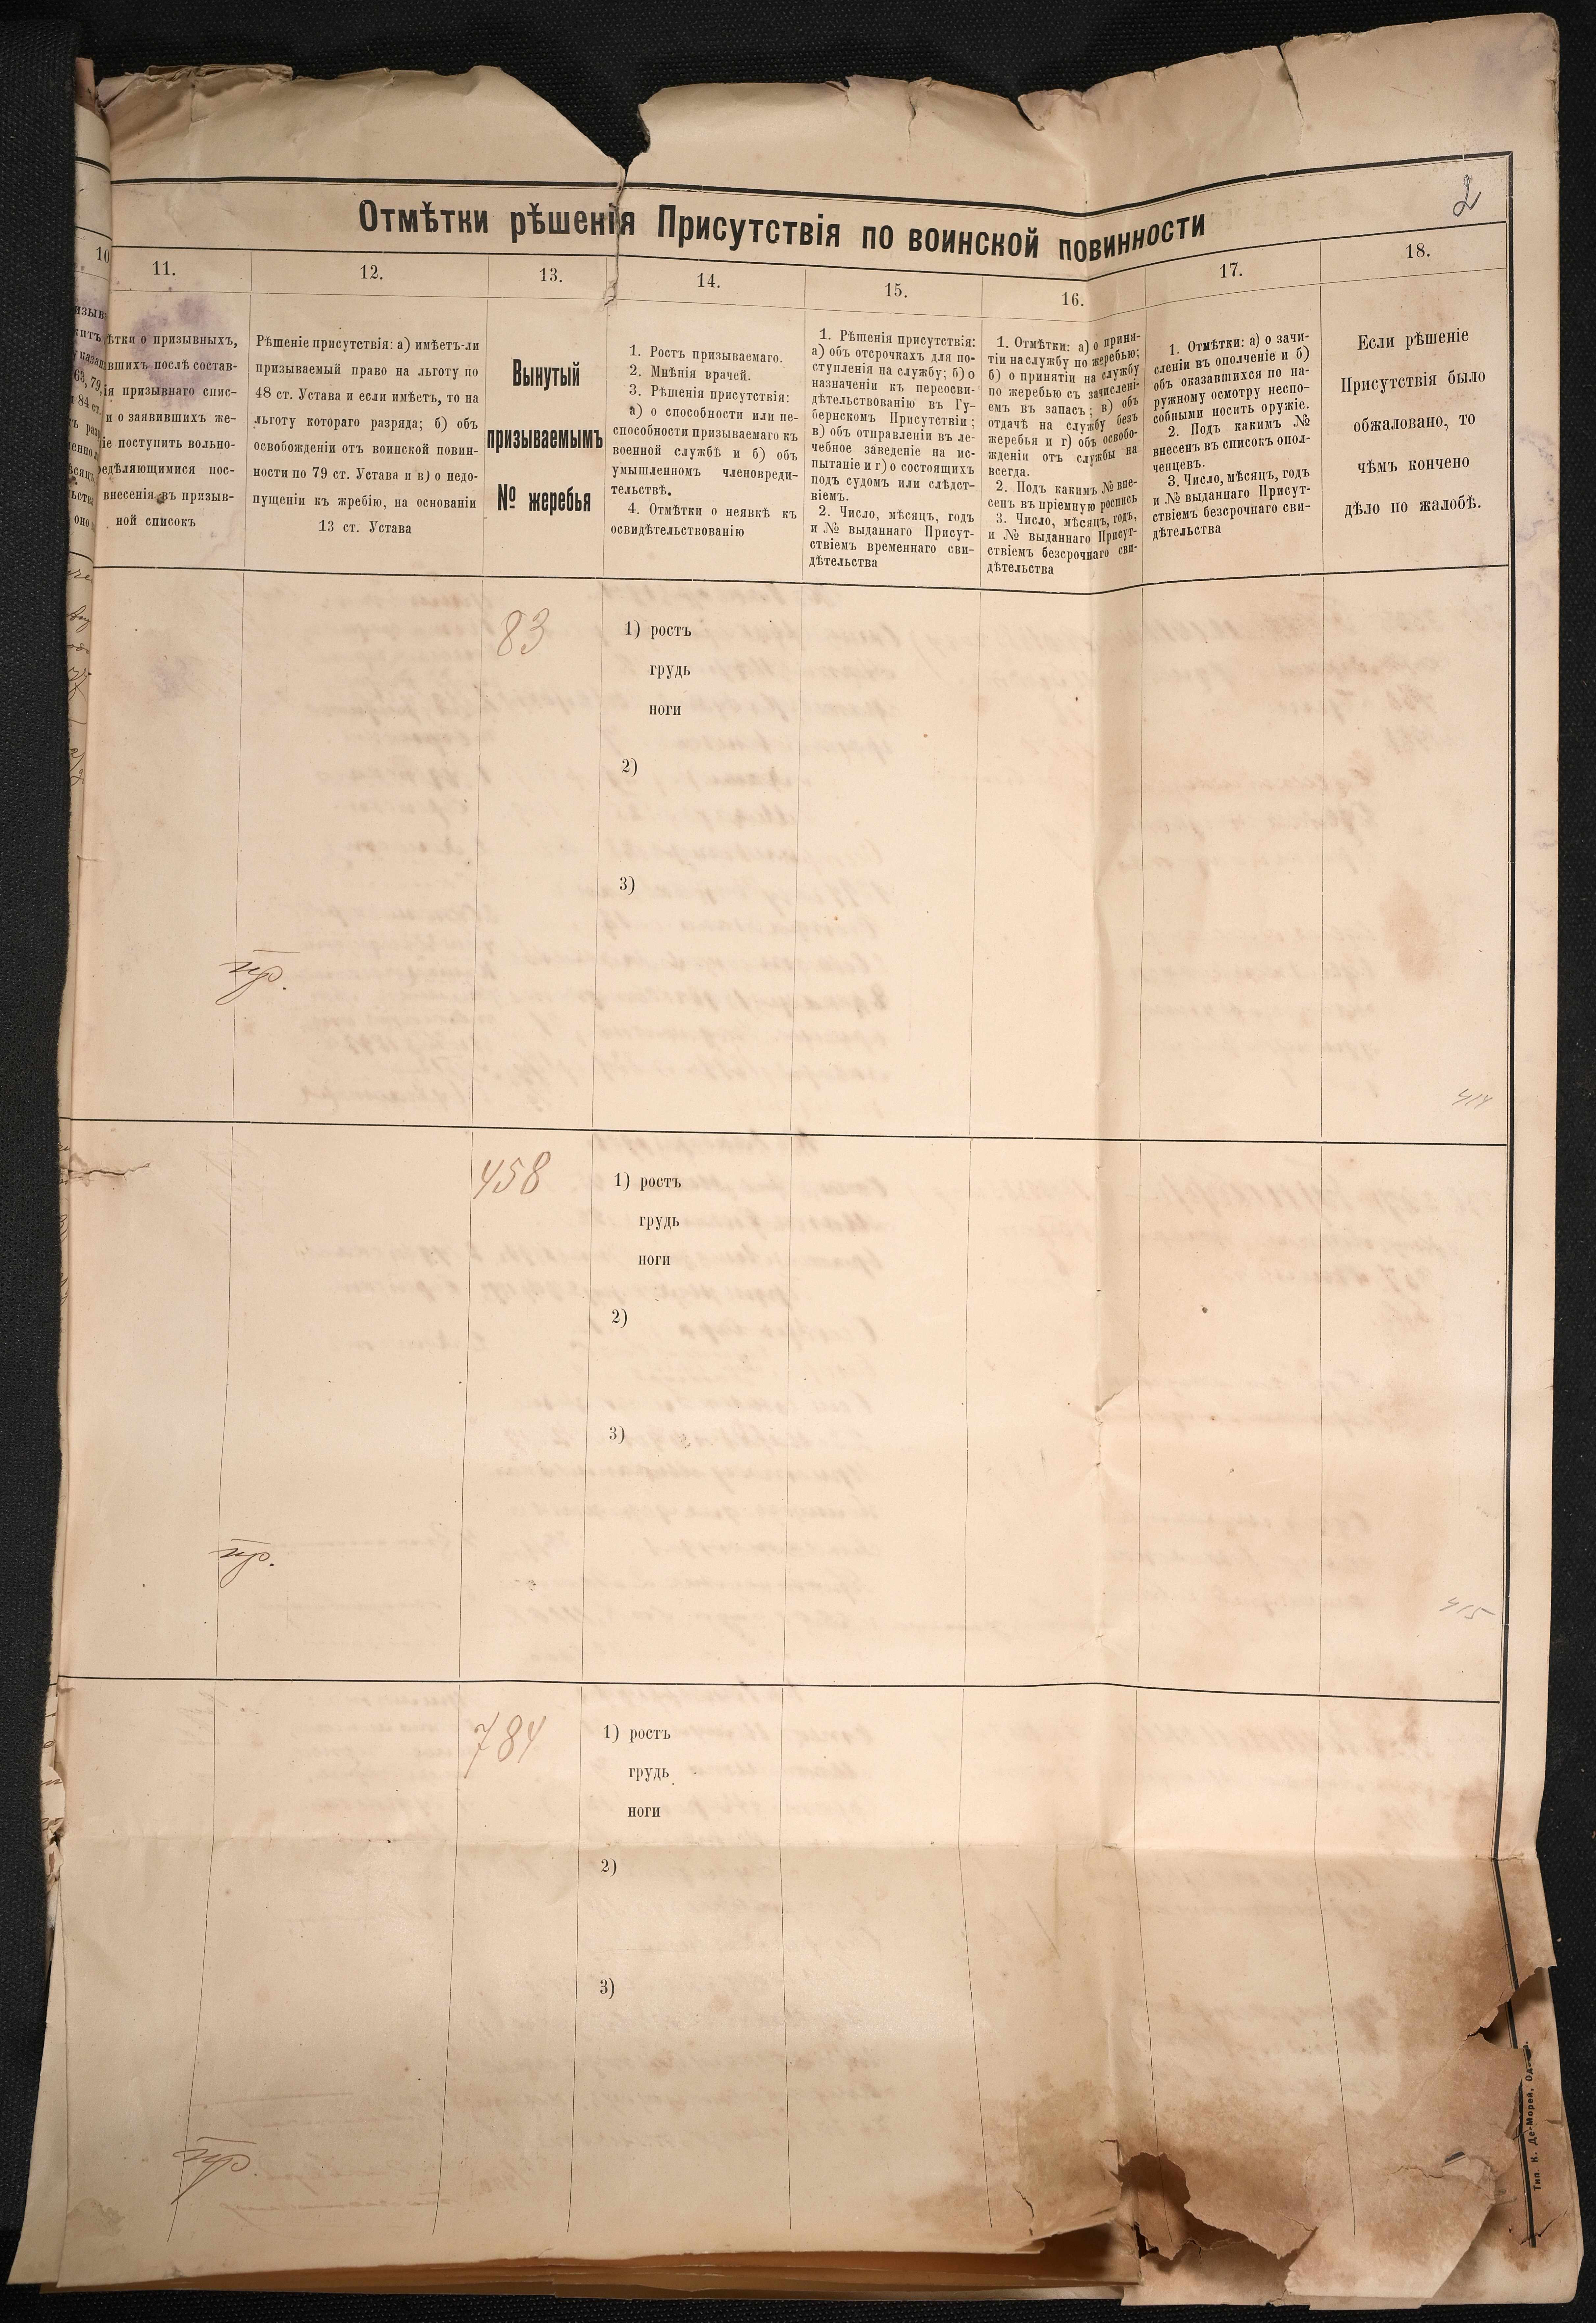 2
Отмѣтки рѣшенія Присутствія по воинской повинности
10
11.
12.
13.
14.
15.
16.
17.
18.
ѣтки о призывныхъ,
вшихъ послѣ состав-
ія призывнаго спис-
и о заявившихъ же-
іе поступить вольно-
едѣляющимися пос-
внесенія въ призыв-
ной списокъ
Рѣшеніе присутствія: а) имѣетъ-ли
призываемый право на льготу по
48 ст. Устава и если имѣетъ, то на
льготу котораго разряда; б) объ
освобожденіи отъ воинской повин-
ности по 79 ст. Устава и в) о недо-
пущеніи къ жребію, на основаніи
13 ст. Устава
Вынутый
призываемымъ
№ жеребья
1. Ростъ призываемаго.
2. Мнѣнія врачей.
3. Рѣшенія присутствія:
а) о способности или не-
способности призываемаго къ
военной службѣ и б) объ
умышленномъ членовреди-
тельствѣ.
4. Отмѣтки о неявкѣ къ
освидѣтельствованію
1. Рѣшенія присутствія:
а) объ отсрочкахъ для по-
ступленія на службу; б) о
назначеніи къ переосви-
дѣтельствованію въ Гу-
бернскомъ Присутствіи;
в) объ отправленіи въ ле-
чебное заведеніе на ис-
пытаніе и г) о состоящихъ
подъ судомъ или слѣдст-
віемъ.
2. Число, мѣсяцъ, годъ
и № выданнаго Присут-
ствіемъ временнаго сви-
дѣтельства
1. Отмѣтки: а) о приня-
тіи на службу по жеребью;
б) о принятіи на службу
по жеребью съ зачислені-
емъ въ запасъ; в) объ
отдачѣ на службу безъ
жеребья и г) объ освобо-
жденіи отъ службы на
всегда.
2. Подъ какимъ № вне-
сенъ въ пріемную роспись
3. Число, мѣсяцъ, годъ,
и № выданнаго Присут-
ствіемъ безсрочнаго сви-
дѣтельства
1. Отмѣтки: а) о зачи-
сленіи въ ополченіе и б)
объ оказавшихся по на-
ружному осмотру неспо-
собными носить оружіе.
2. Подъ какимъ №
внесенъ въ списокъ опол-
ченцевъ.
3. Число, мѣсяцъ, годъ
и № выданнаго Присут-
ствіемъ безсрочнаго сви-
дѣтельства
Если рѣшеніе
Присутствія было
обжаловано, то
чѣмъ кончено
дѣло по жалобѣ.
83
1) ростъ
грудь
ноги
2)
3)
пр.
414
458
1) ростъ
грудь
ноги
2)
3)
пр.
415
784
1) ростъ
грудь
ноги
2)
3)
пр.
Тип. К. Де-Морей, Од